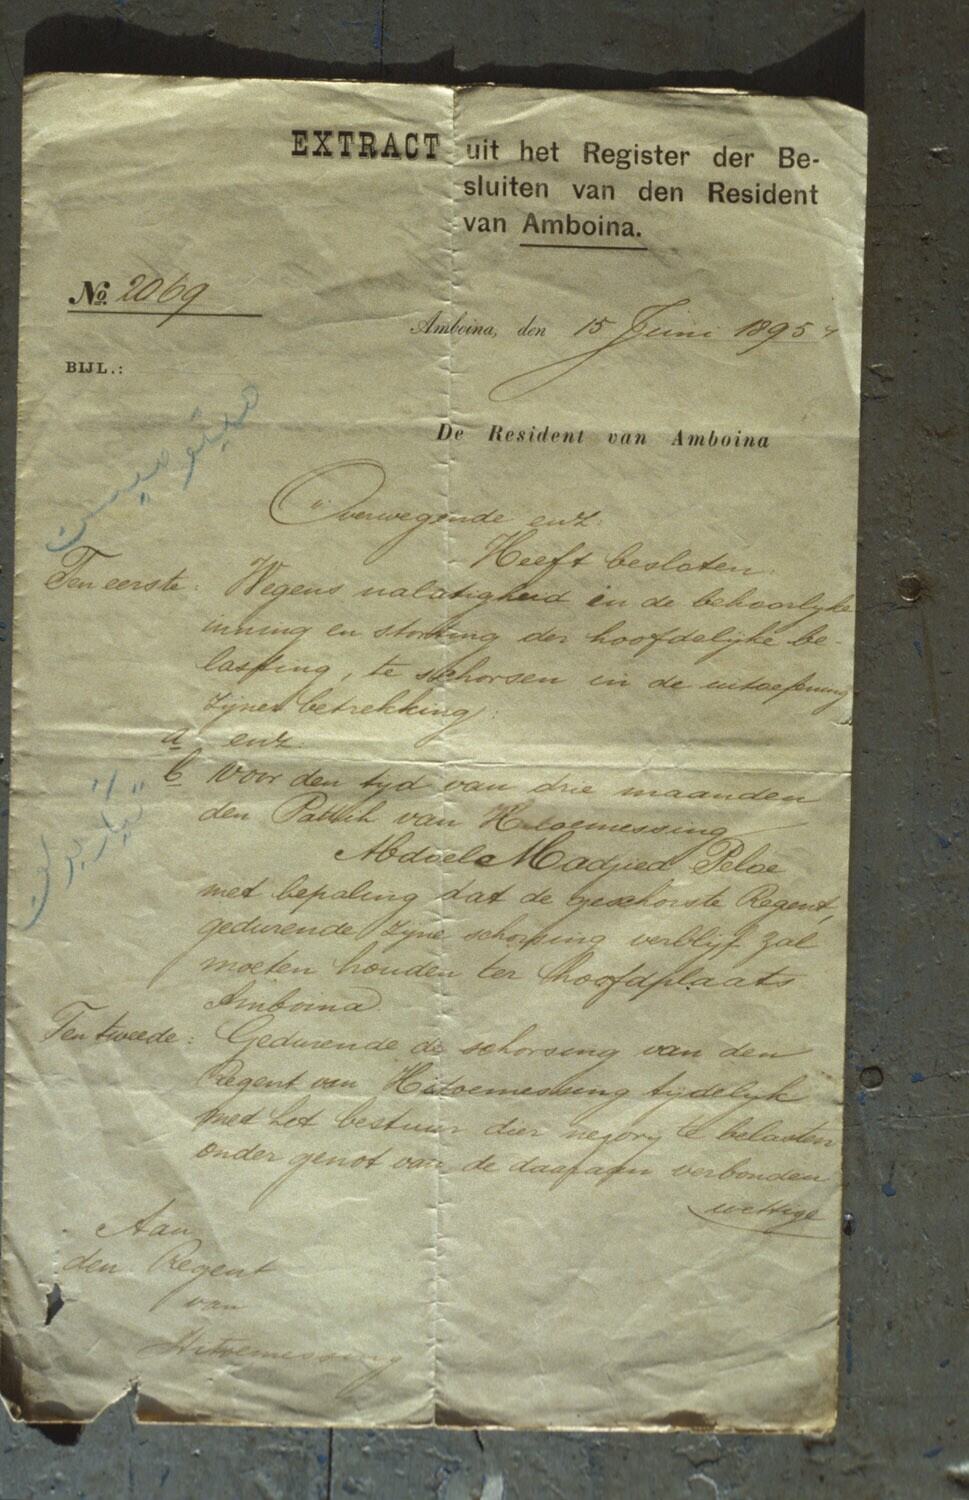 EXTRACT uit het Register der Be-
sluiten van den Resident
van Amboina.
No. 2069
Amboina, den 15 Juni 1895
BIJL.:
De Resident van Amboina
Overwegende enz.
Heeft besloten:
Ten eerste: Wegens nalatigheid in de behoorlijke
inning en storting der hoofdelijke be-
lasting, te schorsen in de uitoefening
zijner betrekking:
a enz.
b Voor den tijd van drie maanden
den Pattih van Hitoemessing
Abdoel Madjied Peloe
met bepaling dat de geschorste Regent,
gedurende zijne schorsing verblijf zal
moeten houden ter hoofdplaats
Amboina.
Ten tweede: Gedurende de schorsing van den
Regent van Hitoemessing tijdelijk
met het bestuur dier negorij te belasten
onder genot van de daaraan verbonden
wettige
Aan
den Regent
van
Hitoemessing
هيتو ميسڠ